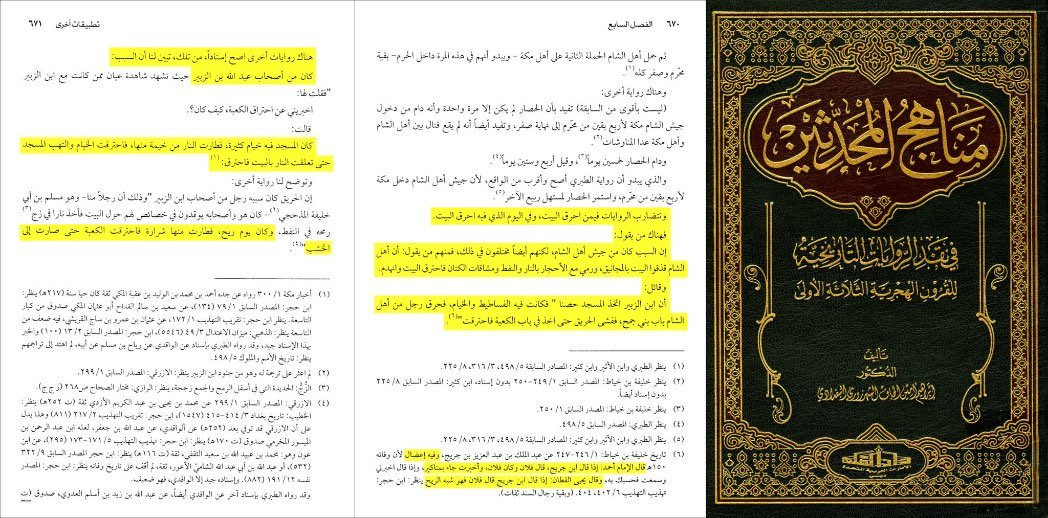 تطبيقات أخرى ٦٧١
هناك روايات أخرى اصح إسناداً، من تلك، تبين لنا أن السبب:
كان من أصحاب عبد الله بن الزبير حيث تشهد شاهدة عيان ممن كانت مع ابن الزبير
"فقلت لها:
اخبريني عن احتراق الكعبة، كيف كان؟.
قالت:
كان المسجد فيه خيام كثيرة، فطارت النار من خيمة منها، فاحترقت الخيام والتهب المسجد
حتى تعلقت النار بالبيت فاحترق.(١)
وتوضح لنا رواية أخرى:
إن الحريق كان سببه رجل من أصحاب ابن الزبير "وذلك أن رجلاً منا- وهو مسلم بن أبي
خليفة المذحجي(٢)- كان هو وأصحابه يوقدون في خصائص لهم حول البيت فأخذ نارا في زج(٣)
رمحه في النفط، وكان يوم ريح، فطارت منها شرارة فاحترقت الكعبة حتى صارت إلى
الخشب"(٤).
(١) أخبار مكة ١/ ٣٠٠ رواه عن جده أحمد بن محمد بن الوليد بن عقبة المكي ثقة كان حيا سنة (٢١٧هـ) ينظر:
ابن حجر: المصدر السابق ١/ ٧٩ (١٣٤)، عن سعيد بن سالم القداح أبو عثمان المكي صدوق من كبار
التاسعة. ينظر ابن حجر: تقريب التهذيب ١/ ١٧٢، عن عثمان بن عمرو بن ساج القريشي، فيه ضعف من
التاسعة. ينظر: الذهبي: ميزان الاعتدال ٣/ ٤٩ (٥٥٤٦)، ابن حجر: المصدر السابق ٢/ ١٣ (١٠٠) والخبر
بهذا الإسناد جيد، وقد رواه الطبري بإسناد عن الواقدي عن رياح بن مسلم عن أبيه، لم اهتد إلى تراجمهم
ينظر: تاريخ الأمم والملوك ٥/ ٤٩٨.
(٢) لم اعثر على ترجمة له وهو من جنود ابن الزبير ينظر: الازرقي: المصدر السابق ١/ ٢٩٩.
(٣) الزُّجُّ: الحديدة التي في أسفل الرمح والجمع زججة، ينظر: الرازي: مختار الصحاح ص٢٦٨ (ز ج ج).
(٤) الازرقي: المصدر السابق ١/ ٢٩٩ عن محمد بن يحيى بن عبد الكريم الأزدي ثقة (ت ٢٥٢هـ) ينظر:
الخطيب: تاريخ بغداد ٣/ ٤١٤-٤١٥ (١٥٤٧)، ابن حجر: تهذيب التهذيب ٢/ ٢١٧ (٨١١) وهذا يدل
على أن الازرقي قد توفي بعد ٢٥٢هـ عن ألواقدي، عن عبد الله بن جعفر، لعله ابن عبد الرحمن بن
الميسور المخرمي صدوق (ت ١٧٠هـ) ينظر: ابن حجر: تهذيب التهذيب ٥/ ١٧١-١٧٣ (٢٩٥)، عن ابن
عون: وهو: محمد بن عبيد الله بن سعيد الثقفي، ثقة (ت ١١٦هـ) ينظر: ابن حجر: المصدر السابق ٩/ ٣٢٢
(٥٣٢)، أو عبد الله بن أبي عبد الله الشاميّ الأعور، ثقة، لم أقف على تاريخ وفاته ينظر: ابن حجر: المصدر
نفسه ١٢/ ١٩١ (٨٨٢)، وإسناده جيد إلا الواقدي، فهو ضعيف.
وقد رواه الطبري بإسناد آخر عن الواقدي أيضاً، عن عبد الله بن زيد بن أسلم العدوي، صدوق (ت
٦٧٠ الفصل السابع
ثم حمل أهل الشام الحملة الثانية على أهل مكة - ويبدو أنهم في هذه المرة داخل الحرم- بقية
محرّم وصفر كله(١).
وهناك رواية أخرى:
(ليست بأقوى من السابقة) تفيد بأن الحصار لم يكن إلا مرة واحدة وأنه دام من دخول
جيش الشام مكة لأربع بقين من محرّم إلى نهاية صفر، وتفيد أيضاً أنه لم يقع قتال بين أهل الشام
وأهل مكة عدا المناوشات(٢).
ودام الحصار لخمسين يوماً(٣)، وقيل أربع وستين يوماً(٤).
والذي يبدو أن رواية الطبري أصح وأقرب من الواقع، لأن جيش أهل الشام دخل مكة
لأربع بقين من محرّم، واستمر الحصار لمستهل ربيع الآخر(٥).
وتتضارب الروايات فيمن احرق البيت، وفي اليوم الذي فيه احرق البيت.
فهناك من يقول:
إن السبب كان من جيش أهل الشام، لكنهم أيضاً مختلفون في ذلك، فمنهم من يقول: أن أهل
الشام قذفوا البيت بالمجانيق، ورمي مع الأحجار بالنار والنفط ومشاقات الكتان فاحترق البيت وانهدم.
وقائل:
أن ابن الزبير اتخذ المسجد حصنا " فكانت فيه الفساطيط والخيام، فحرق رجل من أهل
الشام باب بني جمح، ففشى الحريق حتى اخذ في باب الكعبة فاحترقت"(٦).
(١) ينظر الطبري وابن الأثير وابن كثير: المصادر السابقة ٥/ ٤٩٨، ٣/ ٣١٦، ٨/ ٢٢٥.
(٢) ينظر خليفة بن خياط: المصدر السابق ١/ ٢٤٩-٢٥٠ بدون إسناد، ابن كثير: المصدر السابق ٨/ ٢٢٥
بدون إسناد أيضاً.
(٣) ينظر خليفة بن خياط: المصدر السابق ١/ ٢٥٠.
(٤) ينظر الطبري: المصدر السابق ٥/ ٤٩٨.
(٥) ينظر الطبري وابن الأثير وابن كثير: المصادر السابقة ٥/ ٤٩٨، ٣/ ٣١٦، ٨/ ٢٢٥.
(٦) تاريخ خليفة بن خياط: ١/ ٢٤٦-٢٤٧ عن عبد الملك بن عبد العزيز بن جريج، وفيه إعضال لأن وفاته
١٥٠هـ قال الإمام أحمد: إذا قال ابن جريج، قال فلان وكان فلان، وأخبرت جاء بمناكير، وإذا قال اخبرني
وسمعت فحسبك به، وقال يحيى القطان: إذا قال ابن جريج قال فلان فهو شبه الريح ينظر: ابن حجر:
تهذيب التهذيب ٦/ ٤٠٢، ٤٠٤. (وبقية رجال السند ثقات).
مناهج المحدثين
في نقد الروايات التاريخية
للقرون الهجرية الثلاثة الأولى
تأليف
الدكتور
إبراهيم أمين الجاف الشهرزوري البغدادي
دار القلم
الإمارات العربية المتحدة